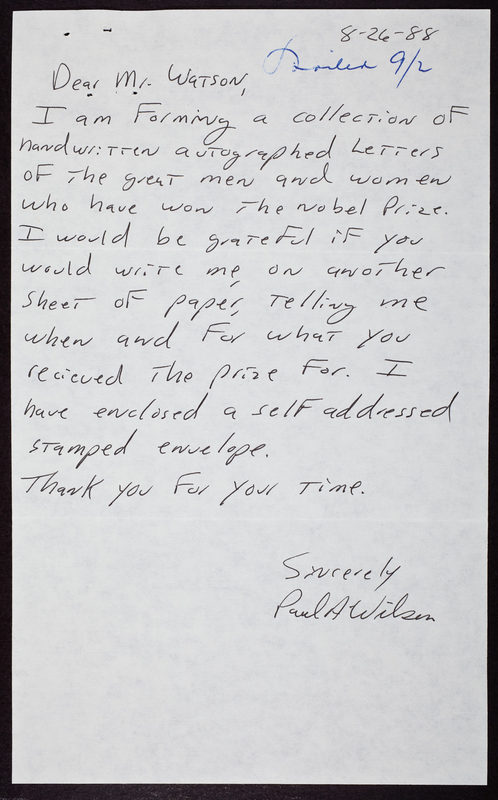 8-26-88
9/2
Dear Mr. Watson,
I am Forming a collection of
handwritten autographed Letters
of the great men and women
who have won the Nobel Prize.
I would be grateful if you
would write me, on another
sheet of paper, telling me
when and for what you
recieved the prize for. I
have enclosed a self addressed
stamped envelope.
Thank you for your time.
Sincerely
Paul A Wilson